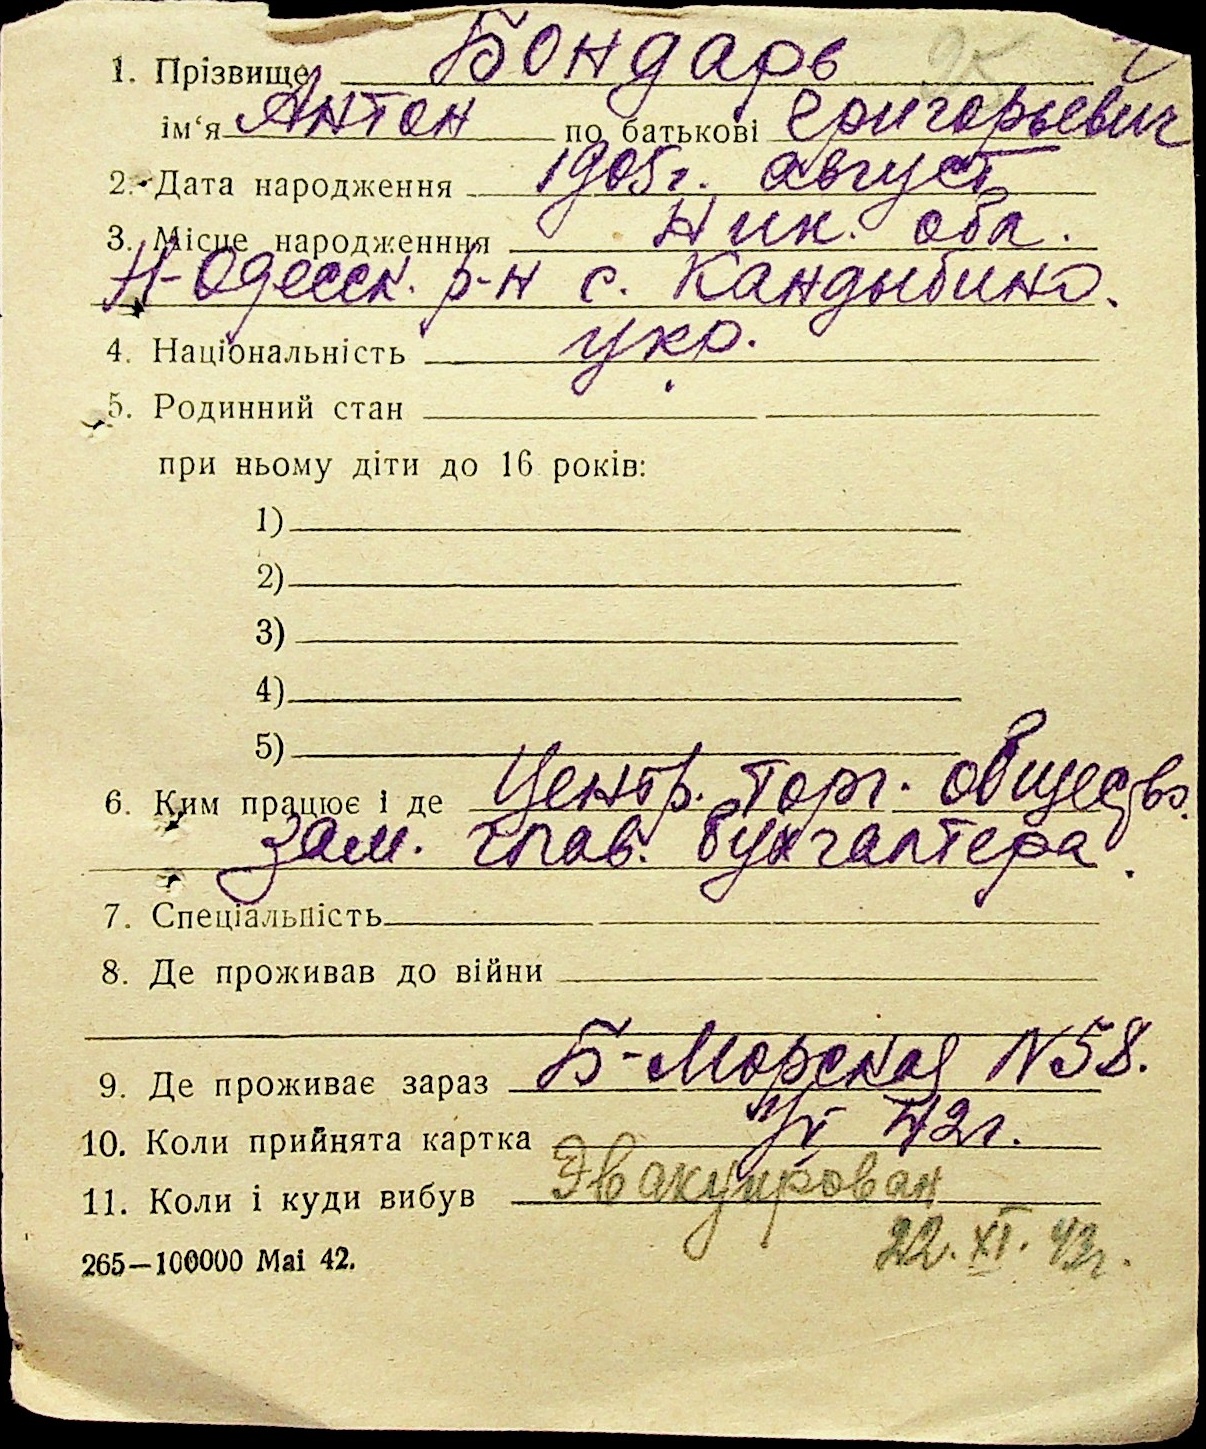 1. Прізвище Бондарь
ім‘я Антон по батькові Григорьевич
2. Дата народження 1905г. август
3. Місце народженння Ник. обл.
Н-Одесск. р-н с. Кандыбино.
4. Національність укр.
5. Родинний стан
при ньому діти до 16 років:
1)
2)
3)
4)
5)
6. Ким працює і де Центр. торг. общество.
зам. глав. бухгалтера.
7. Спеціальність
8. Де проживав до війни
9. Де проживає зараз Б-Морская N58.
10. Коли прийнята картка 42г.
11. Коли і куди вибув Эвакуирован
22. XI. 43г.
265—100000 Mai 42.